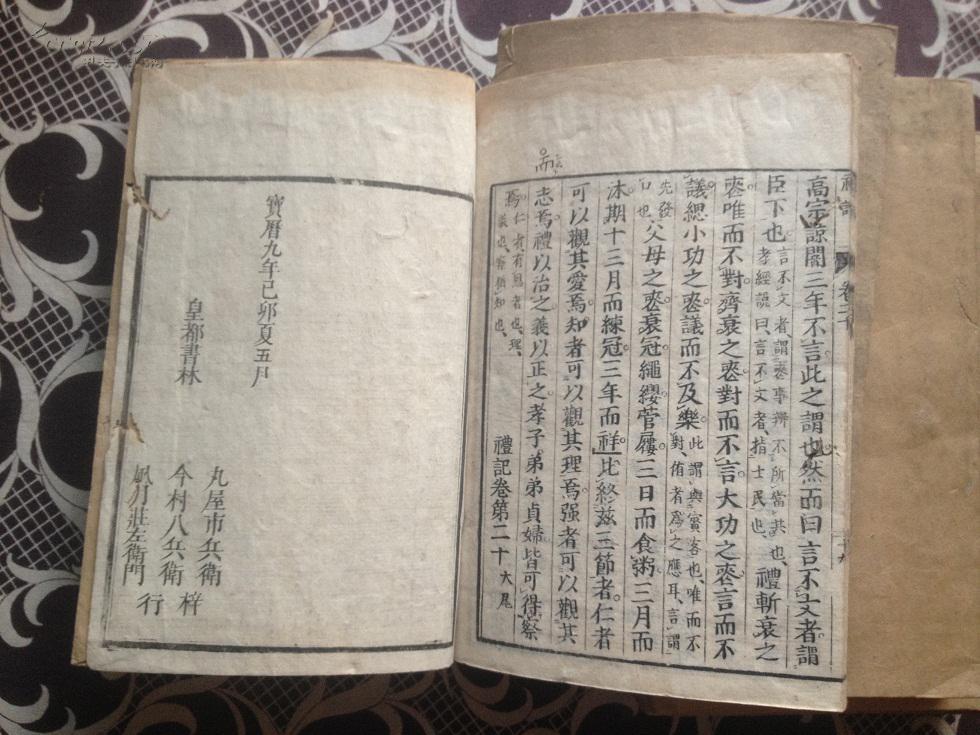 高宗諒闇三年不言此之謂也然而曰言不文者謂
臣下也 言不文者謂喪事辨不所當共也 孝經說曰言不文者指士民也 禮斬衰之
喪唯而不對齊衰之喪對而不言大功之喪言而不
議緦小功之喪議而不及樂 此謂與賓客也唯而不對侑者爲之應耳言謂
先發口也 父母之喪衰冠繩纓菅屨三日而食粥三月而
沐期十三月而練冠三年而祥比終茲三節者仁者
可以觀其愛焉知者可以觀其理焉强者可以觀其
志焉禮以治之義以正之孝子弟弟貞婦皆可得察
焉 仁者有恩者也理義也察猶知也
禮記卷第二十 大尾
寶曆九年己卯夏五月
皇都書林
丸屋市兵衛
今村八兵衛 梓
風月莊左衛門 行